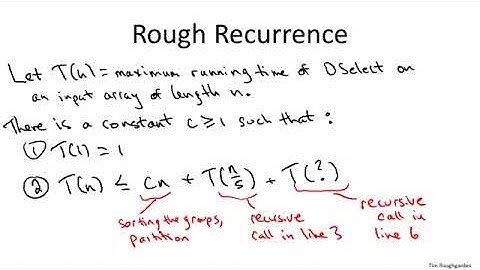 Rough Recurrence
Let T(n) = maximum running time of DSelect on
an input array of length n.
There is a constant c ≥ 1 such that :
① T(1) = 1
② T(n) ≤ cn + T(n/5) + T(?)
sorting the groups,
partition
recursive
call in line 3
recursive
call in
line 6
Tim Roughgarden